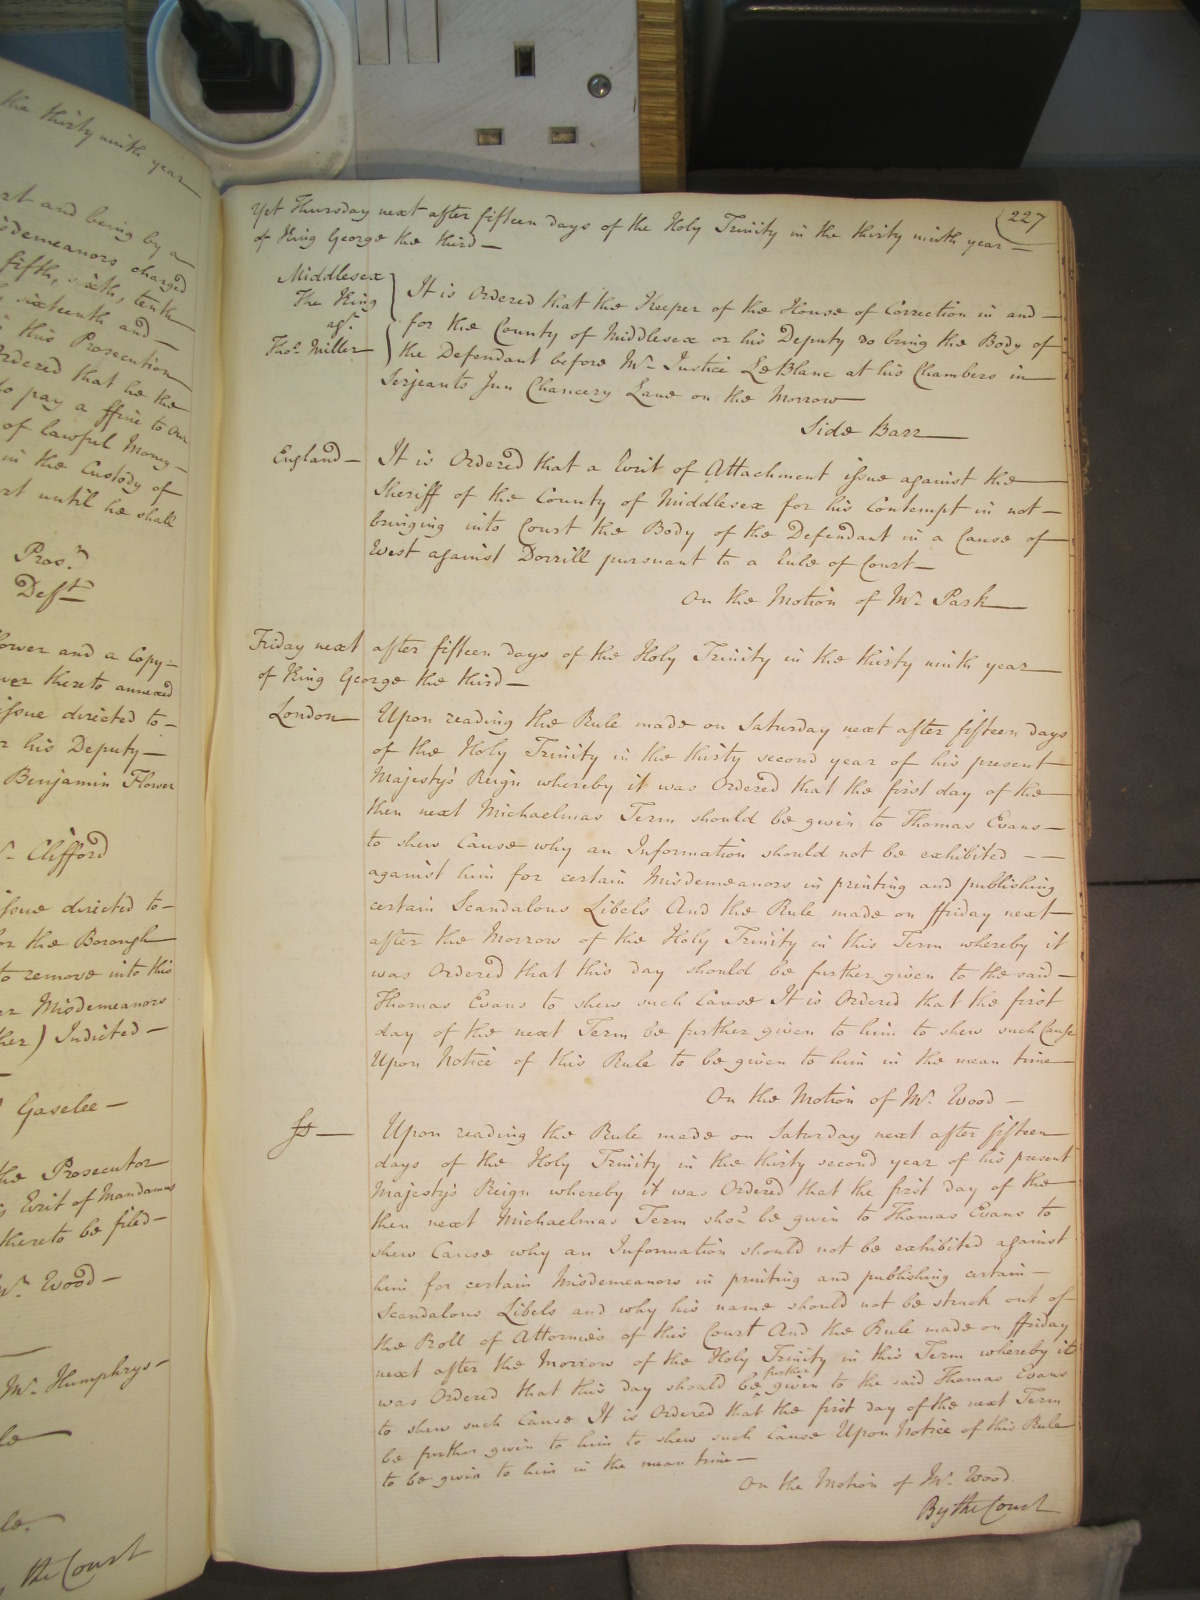 the thirty ninth year
rt and being by a
isdemeanors charged
fifth, sixth, tenth
sixteenth and —
this Prosecution
Ordered that he the
to pay a ffine to our
of lawful Money —
in the Custody of
rt until he shall
Pros.r
Deft
lower and a Copy —
wer thereto annexed
issue directed to —
r his Deputy —
Benjamin Flower
r. Clifford
issue directed to —
or the Borough
to remove into this
er Misdemeanors
her) Indicted —
Gaselee —
the Prosecutor
s Writ of Mandamus
thereto be filed —
Mr. Wood —
Mr. Humphrys —
le
le.
the Court
227
Yet Thursday next after fifteen days of the Holy Trinity in the thirty ninth year —
of King George the third —
Middlesex
The King
agt.
Thos. Miller
It is Ordered that the Keeper of the House of Correction in and —
for the County of Middlesex or his Deputy do bring the Body of
the Defendant before Mr. Justice Le Blanc at his Chambers in
Serjeants Inn Chancery Lane on the Morrow
Side Barr
England — It is Ordered that a Writ of Attachment issue against the
Sheriff of the County of Middlesex for his Contempt in not —
bringing into Court the Body of the Defendant in a Cause of
West against Dorrill pursuant to a Rule of Court —
On the Motion of Mr. Park
Friday next after fifteen days of the Holy Trinity in the thirty ninth year
of King George the third —
London — Upon reading the Rule made on Saturday next after fifteen days
of the Holy Trinity in the thirty second year of his present
Majesty's Reign whereby it was Ordered that the first day of the
then next Michaelmas Term should be given to Thomas Evans —
to shew Cause why an Information should not be exhibited — —
against him for certain Misdemeanors in printing and publishing
certain Scandalous Libels And the Rule made on ffriday next
after the Morrow of the Holy Trinity in this Term whereby it
was Ordered that this day should be further given to the said —
Thomas Evans to shew such Cause It is Ordered that the first
day of the next Term be further given to him to shew such Cause
Upon Notice of this Rule to be given to him in the mean time
On the Motion of Mr. Wood —
Upon reading the Rule made on Saturday next after fifteen
days of the Holy Trinity in the thirty second year of his present
Majesty's Reign whereby it was Ordered that the first day of the
then next Michaelmas Term shod. be given to Thomas Evans to
shew Cause why an Information should not be exhibited against
him for certain Misdemeanors in printing and publishing certain —
Scandalous Libels and why his name should not be struck out of
the Roll of Attornies of this Court And the Rule made on ffriday
next after the Morrow of the Holy Trinity in this Term whereby it
was Ordered that this day should be further given to the said Thomas Evans
to shew such Cause It is Ordered that the first day of the next Term
be further given to him to shew such Cause Upon Notice of this Rule
to be given to him in the mean time —
On the Motion of Mr. Wood.
By the Court